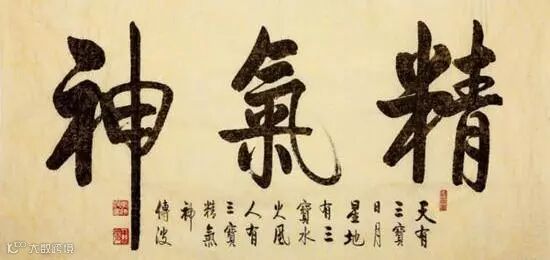 精氣神
天有
三寶
日月
星地
有三
寶水
火風
人有
三寶
精氣
神
大数跨境